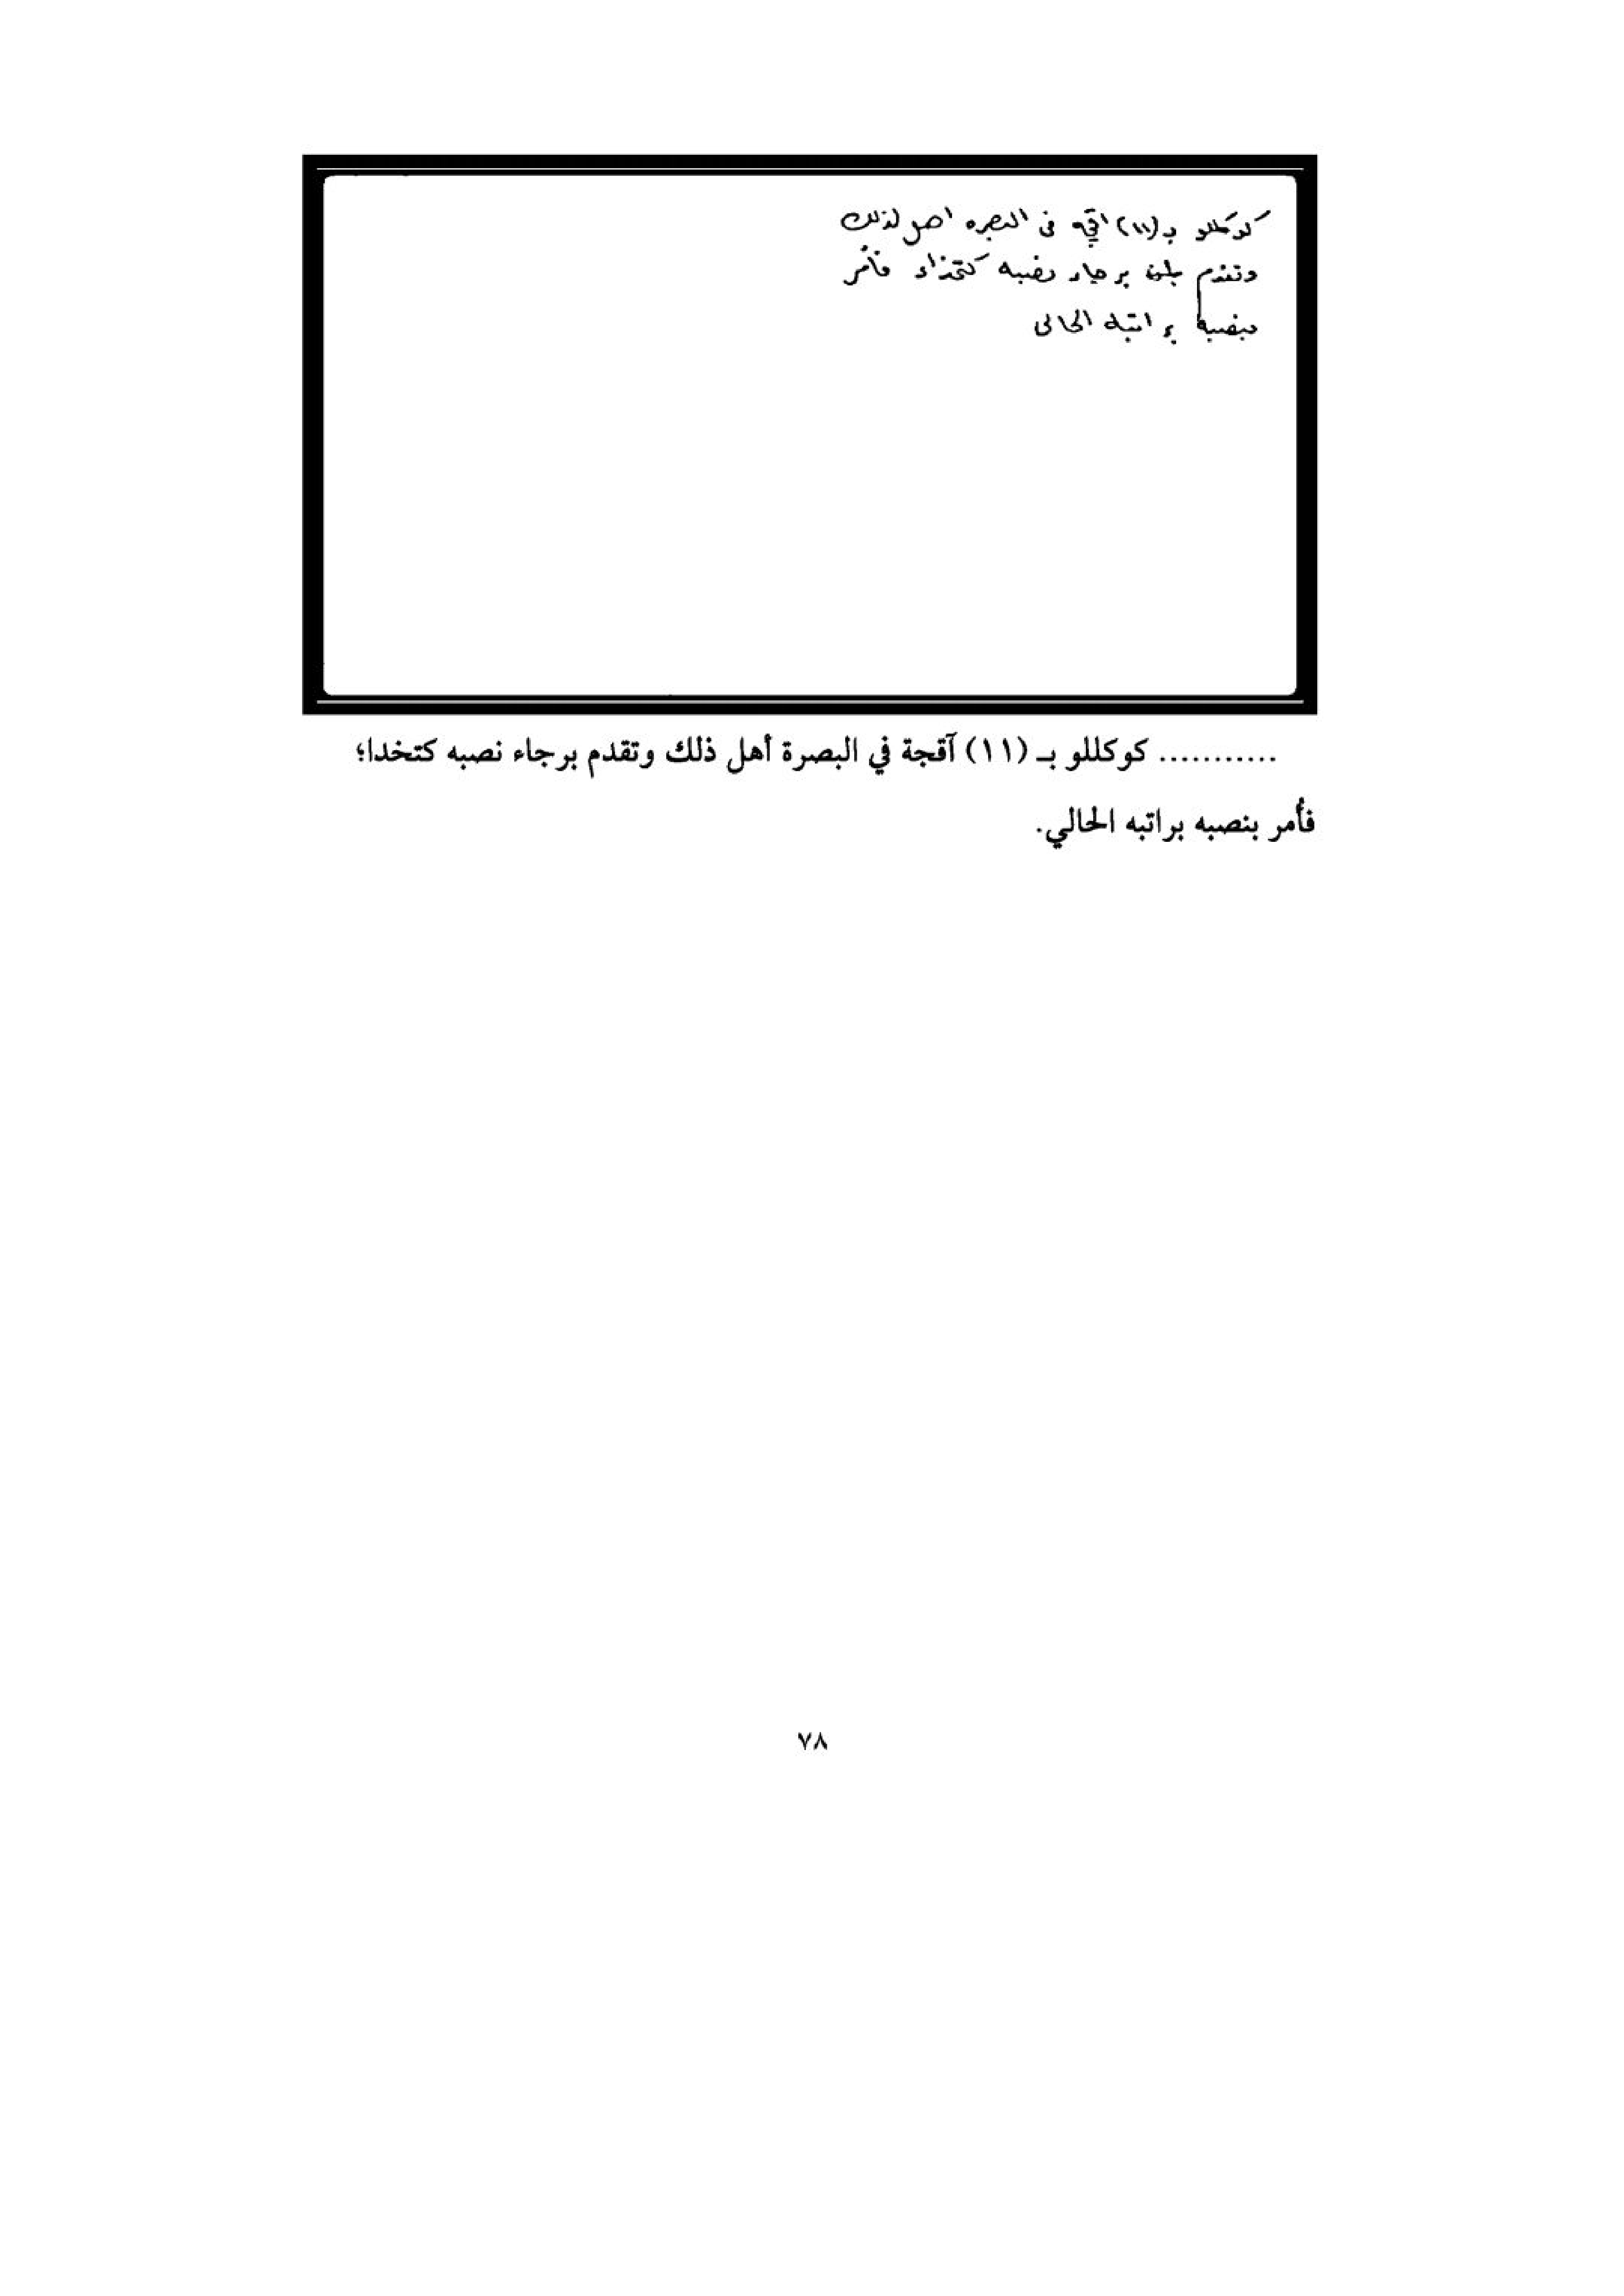 كوكللو بـ (١١) اقجه في البصره اهل لذلك
وتقدم بطلب برجاء نصبه كتخداء فأمر
بنصبه براتبه الحالي
........... كوكللو بـ (١١) آقجة في البصرة أهل ذلك وتقدم برجاء نصبه كتخدا؛
فأمر بنصبه براتبه الحالي.
٧٨